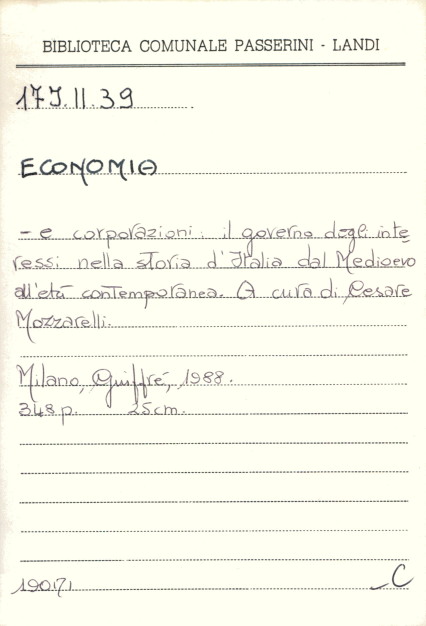 BIBLIOTECA COMUNALE PASSERINI - LANDI
17J.II.39
ECONOMIA
- e corporazioni: il governo degli inte
ressi nella storia d'Italia dal Medioevo
all'età contemporanea. A cura di Cesare
Mozzarelli.
Milano, Giuffré, 1988.
348 p. 25cm.
190171
C